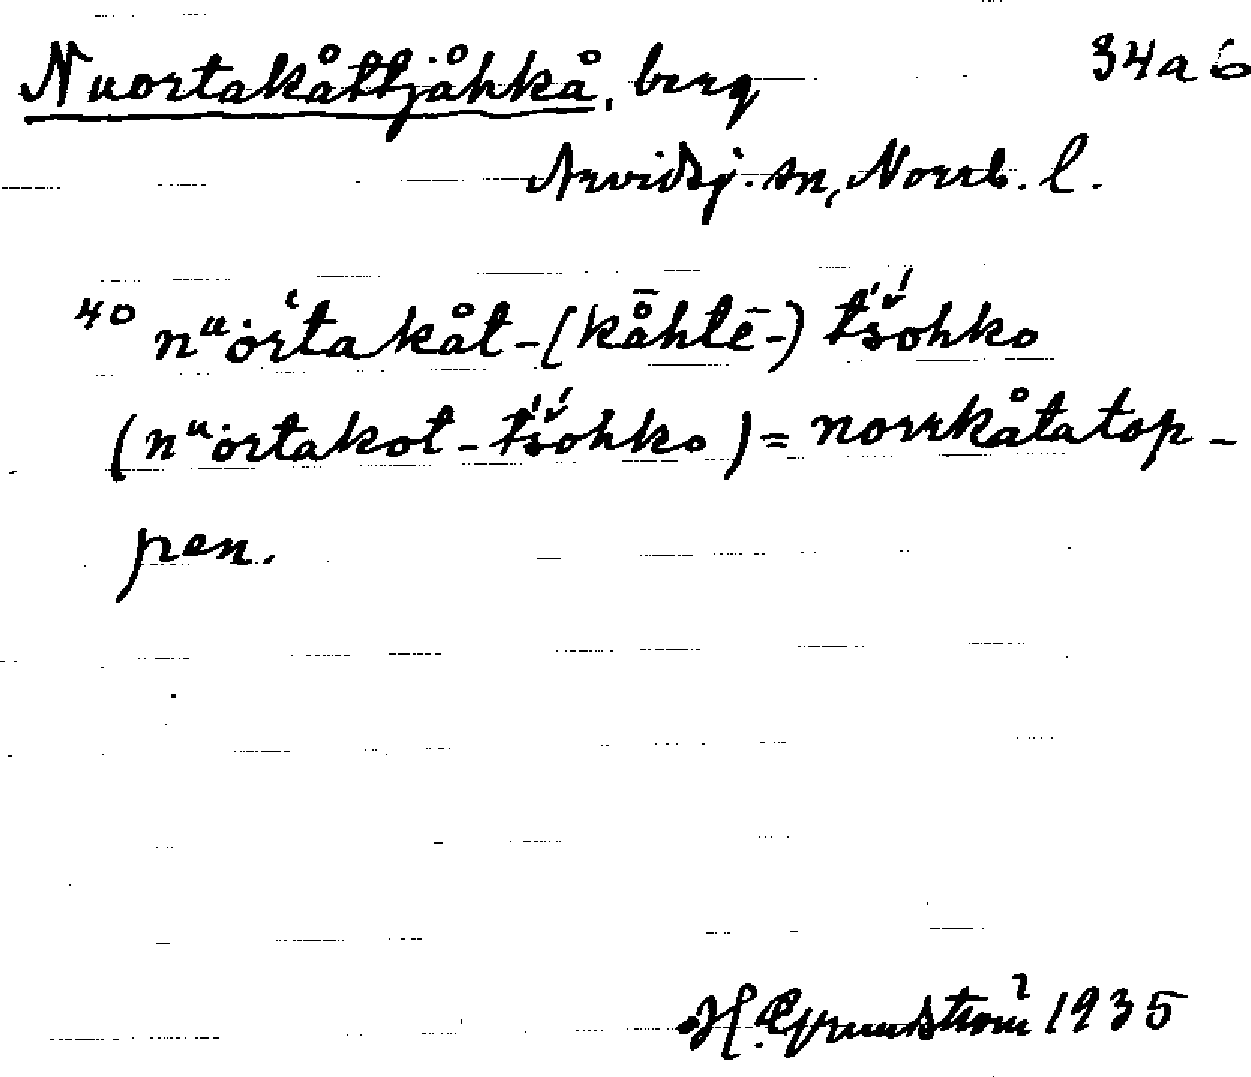 Nuortakåttjåhkå, berg 34a6
Arvidsj. sn, Norrb. l.
40 nᵘȯrʽtakåt-(kå̄htē-) t́š́ohko
(nᵘȯrtakot-t́š́ohko) = norrkåtatop-
pen.
H. Grundström 1935